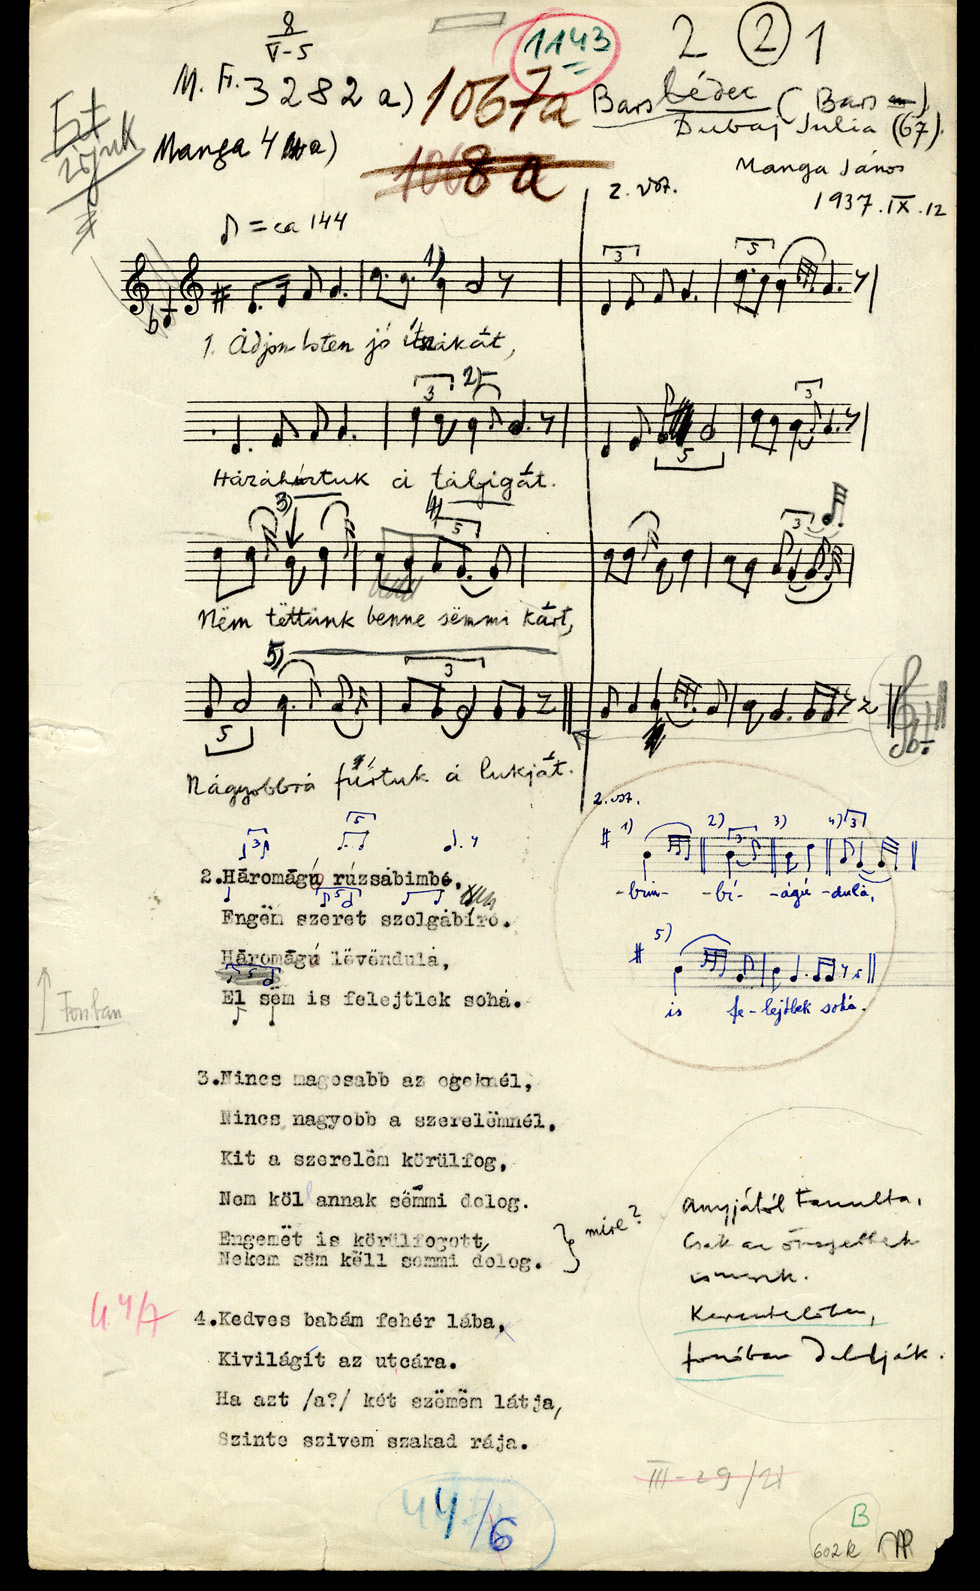 8
V-5
1143
2 2 1
M. F. 3282 a)
1067a
Barsbédec (Bars)
Dubaj Julia (67).
Manga 4 a)
108 a
Manga János
1937.IX.12
Ezt
írjuk
2. vsz.
♪ = ca 144
3
5
1)
1. Ádjon Isten jó ítszákát,
3
2)
5
3
Házáhúztuk á táligát.
3)
4)
5
3
Nëm tëttünk benne sëmmi kárt,
5)
3
5
Nágyobbrá fúrtuk á lukját.
2. vsz.
1) 2) 3) 4)
3
3
-bim- -bi- -ágú -dulá,
5)
is fe-lejtlek sohá.
3
5
2.Háromágú rúzsábimbó,
Engëm szeret szolgábíró.
Háromágú lëvëndulá,
El sëm is felejtlek sohá.
Fonban
3.Nincs magosabb az egeknél,
Nincs nagyobb a szerelëmnél,
Kit a szerelëm körülfog,
Nem köll annak sëmmi dolog.
Engemët is körülfogott,
Nekem sëm këll semmi dolog.
} mire?
Anyjától tanulta.
Csak az öregebbek
ismerik.
Keresztelőben,
fonóban dalolják.
44/A
4.Kedves babám fehér lába,
Kivilágít az utcára.
Ha azt /a?/ két szömëm látja,
Szinte szivem szakad rája.
III-29/21
44/6
B
602k